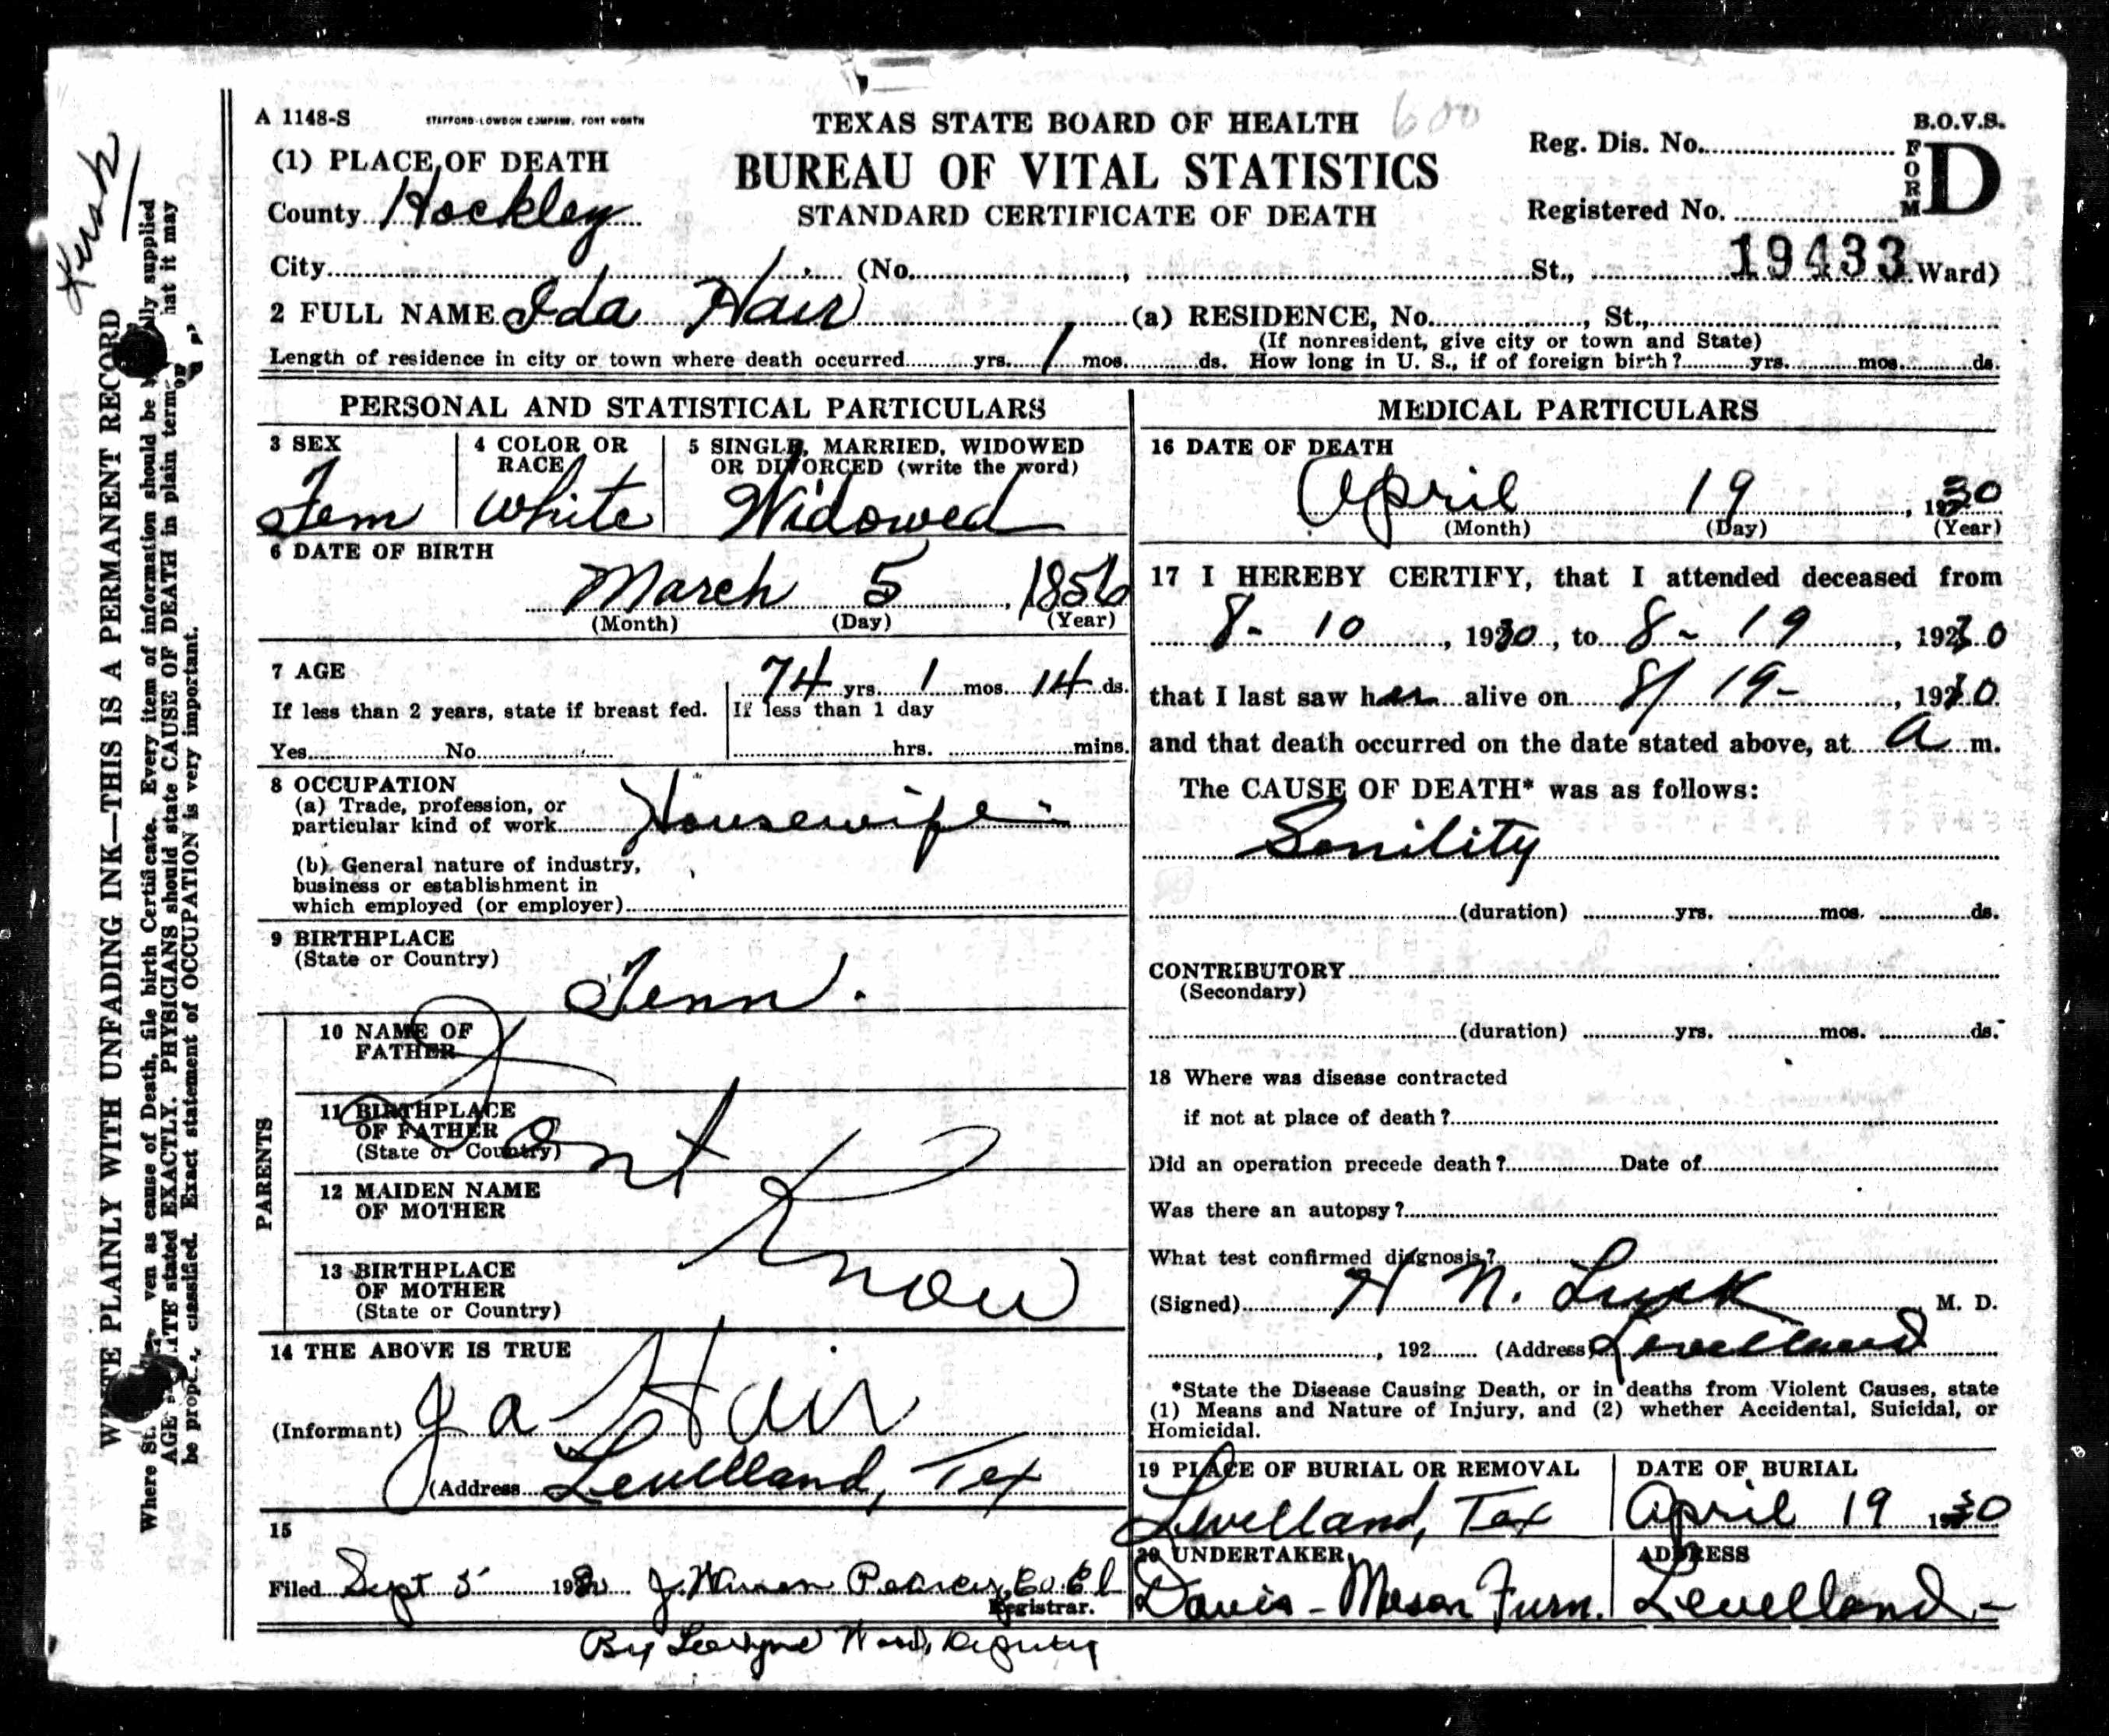 A 1148-S STAFFORD-LOWDON COMPANY, FORT WORTH
TEXAS STATE BOARD OF HEALTH 600
BUREAU OF VITAL STATISTICS
STANDARD CERTIFICATE OF DEATH
B.O.V.S.
FORM D
Reg. Dis. No.
Registered No.
19433
(1) PLACE OF DEATH
County Hockley
City (No. , St., Ward)
2 FULL NAME Ida Hair (a) RESIDENCE, No. , St.,
(If nonresident, give city or town and State)
Length of residence in city or town where death occurred yrs. 1 mos. ds. How long in U. S., if of foreign birth? yrs. mos. ds.
PERSONAL AND STATISTICAL PARTICULARS
3 SEX
Fem
4 COLOR OR RACE
White
5 SINGLE, MARRIED, WIDOWED
OR DIVORCED (write the word)
Widowed
6 DATE OF BIRTH
March 5, 1856
(Month) (Day) (Year)
7 AGE 74 yrs. 1 mos. 14 ds.
If less than 2 years, state if breast fed. If less than 1 day
Yes No hrs. mins.
8 OCCUPATION
(a) Trade, profession, or
particular kind of work Housewife
(b) General nature of industry,
business or establishment in
which employed (or employer)
9 BIRTHPLACE
(State or Country)
Tenn.
PARENTS
10 NAME OF
FATHER
11 BIRTHPLACE
OF FATHER
(State or Country)
12 MAIDEN NAME
OF MOTHER
13 BIRTHPLACE
OF MOTHER
(State or Country)
Dont Know
14 THE ABOVE IS TRUE
(Informant) J a Hair
(Address Levelland, Tex
15
Filed Sept 5 1930 J. Warren Pearcy, Co. Cl
Registrar.
By Deputy
MEDICAL PARTICULARS
16 DATE OF DEATH
April 19, 1930
(Month) (Day) (Year)
17 I HEREBY CERTIFY, that I attended deceased from
8 - 10, 1930, to 8 - 19, 1930
that I last saw her alive on 8/ 19 -, 1930
and that death occurred on the date stated above, at a m.
The CAUSE OF DEATH* was as follows:
Senility
(duration) yrs. mos. ds.
CONTRIBUTORY
(Secondary)
(duration) yrs. mos. ds.
18 Where was disease contracted
if not at place of death?
Did an operation precede death? Date of
Was there an autopsy?
What test confirmed diagnosis?
(Signed) H N. Lusk M. D.
, 192 (Address) Levelland
*State the Disease Causing Death, or in deaths from Violent Causes, state
(1) Means and Nature of Injury, and (2) whether Accidental, Suicidal, or
Homicidal.
19 PLACE OF BURIAL OR REMOVAL
Levelland, Tex
DATE OF BURIAL
April 19 1930
20 UNDERTAKER
Davis - Mason Furn.
ADDRESS
Levelland -
WRITE PLAINLY WITH UNFADING INK—THIS IS A PERMANENT RECORD
ven as cause of Death, file birth Certificate. Every item of information should be supplied
stated EXACTLY. PHYSICIANS should state CAUSE OF DEATH in plain terms that it may
be classified. Exact statement of OCCUPATION is very important.